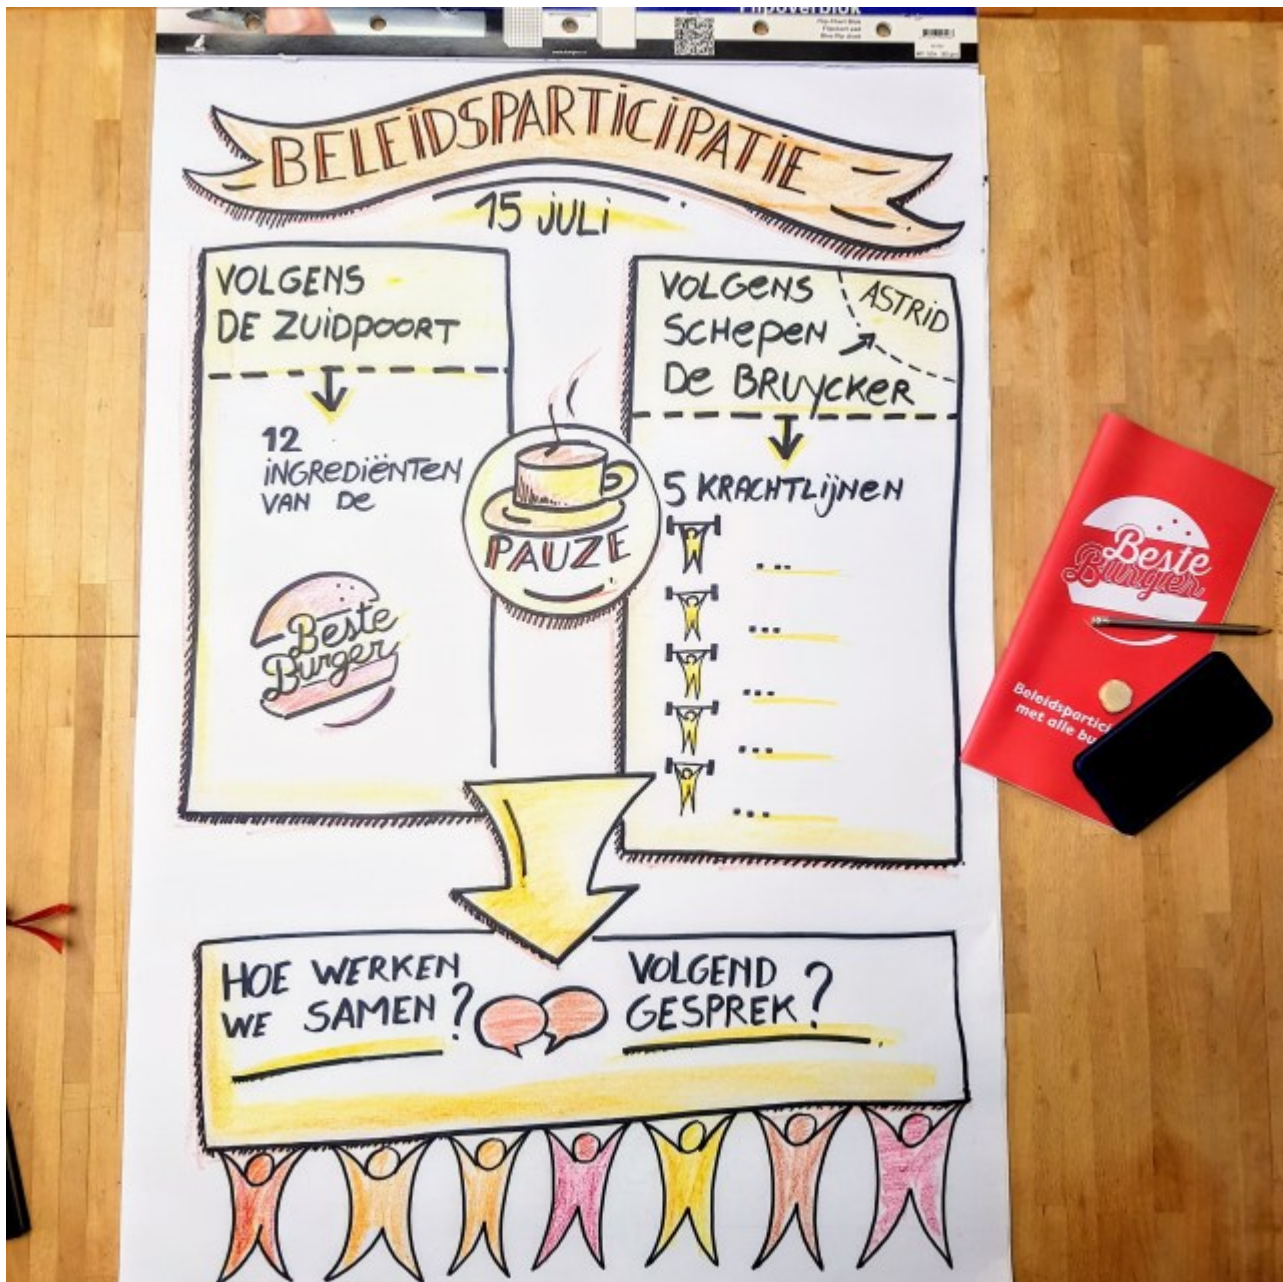 Flipoverblok
BELEIDSPARTICIPATIE
15 JULI
VOLGENS
DE ZUIDPOORT
12
INGREDIËNTEN
VAN DE
Beste
Burger
PAUZE
VOLGENS
SCHEPEN
DE BRUYCKER
ASTRID
5 KRACHTLIJNEN
...
...
...
...
...
HOE WERKEN
WE SAMEN?
VOLGEND
GESPREK?
Beste
Burger
met alle